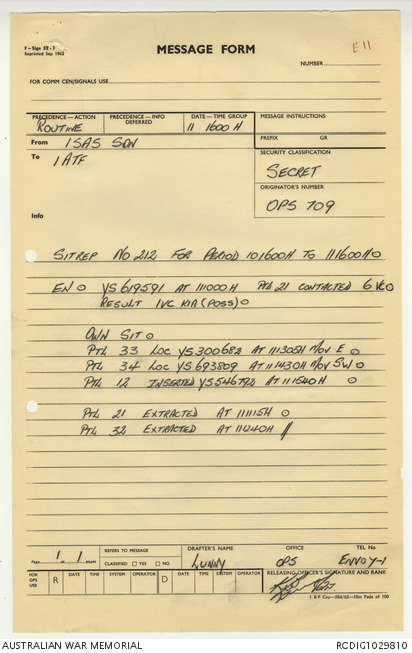 F - Sigs 52 - 1
Reprinted Sep. 1965
MESSAGE FORM
E11
NUMBER
FOR COMM CEN/SIGNALS USE
PRECEDENCE—ACTION
ROUTINE
PRECEDENCE—INFO
DEFERRED
DATE—TIME GROUP
11 1600 H
MESSAGE INSTRUCTIONS
PREFIX GR
From 1 SAS SQN
To 1 ATF
SECURITY CLASSIFICATION
SECRET
ORIGINATOR'S NUMBER
OPS 709
Info
SITREP NO 212 FOR PERIOD 101600H TO 111600H O
EN O YS619591 AT 111000H PTL 21 CONTACTED 6 VC O
RESULT 1 VC KIA (POSS) O
OWN SIT O
PTL 33 LOC YS300682 AT 111305H MOV E O
PTL 34 LOC YS693809 AT 111430H MOV SW O
PTL 12 INSERTED YS546792 AT 111540H O
PTL 21 EXTRACTED AT 111115H O
PTL 32 EXTRACTED AT 111440H //
Page 1 of 1 pages
REFERS TO MESSAGE
CLASSIFIED YES NO
DRAFTER'S NAME
LUNNY
OFFICE
OPS
TEL No
ENVOY-1
FOR OPS USE
R
DATE TIME SYSTEM OPERATOR
D
DATE TIME SYSTEM OPERATOR
RELEASING OFFICER'S SIGNATURE AND RANK
AUSTRALIAN WAR MEMORIAL
RCDIG1029810